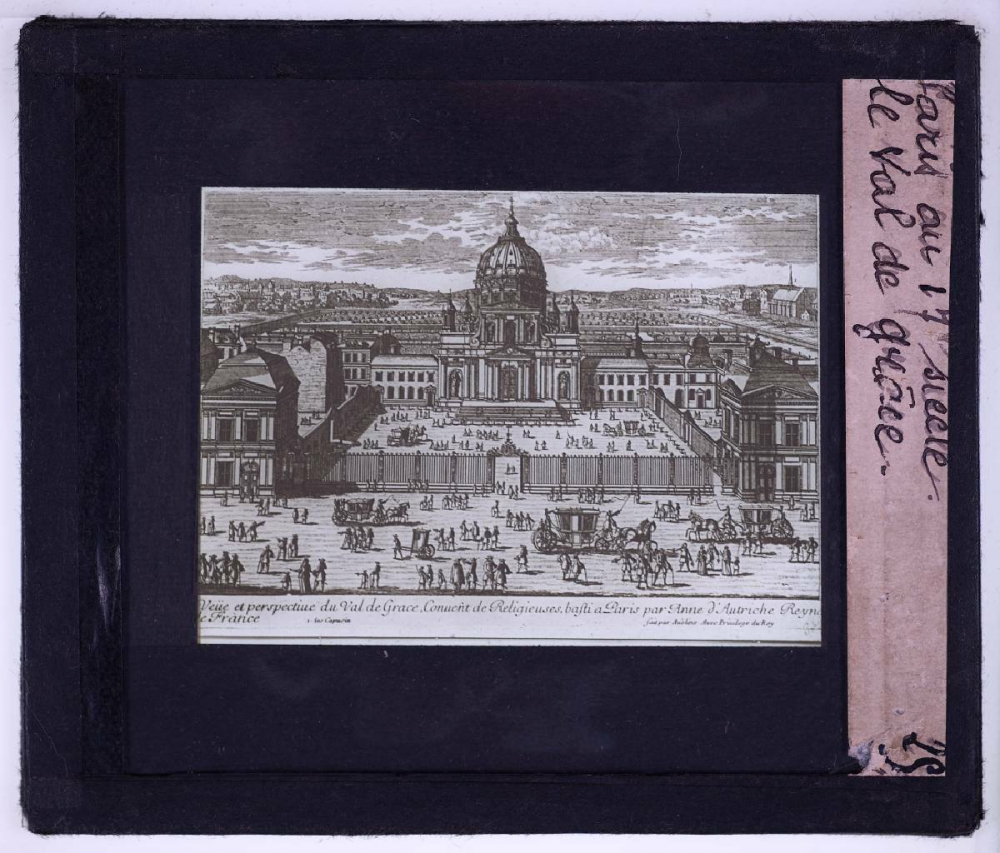 Paris au 17 siècle.
le Val de grâce.
Veüe et perspectiue du Val de Grace, Conuent de Religieuses, basti a Paris par Anne d'Autriche Reyne
e France
1. les Capucin
fait par Aueline Auec Priuilege du Roy